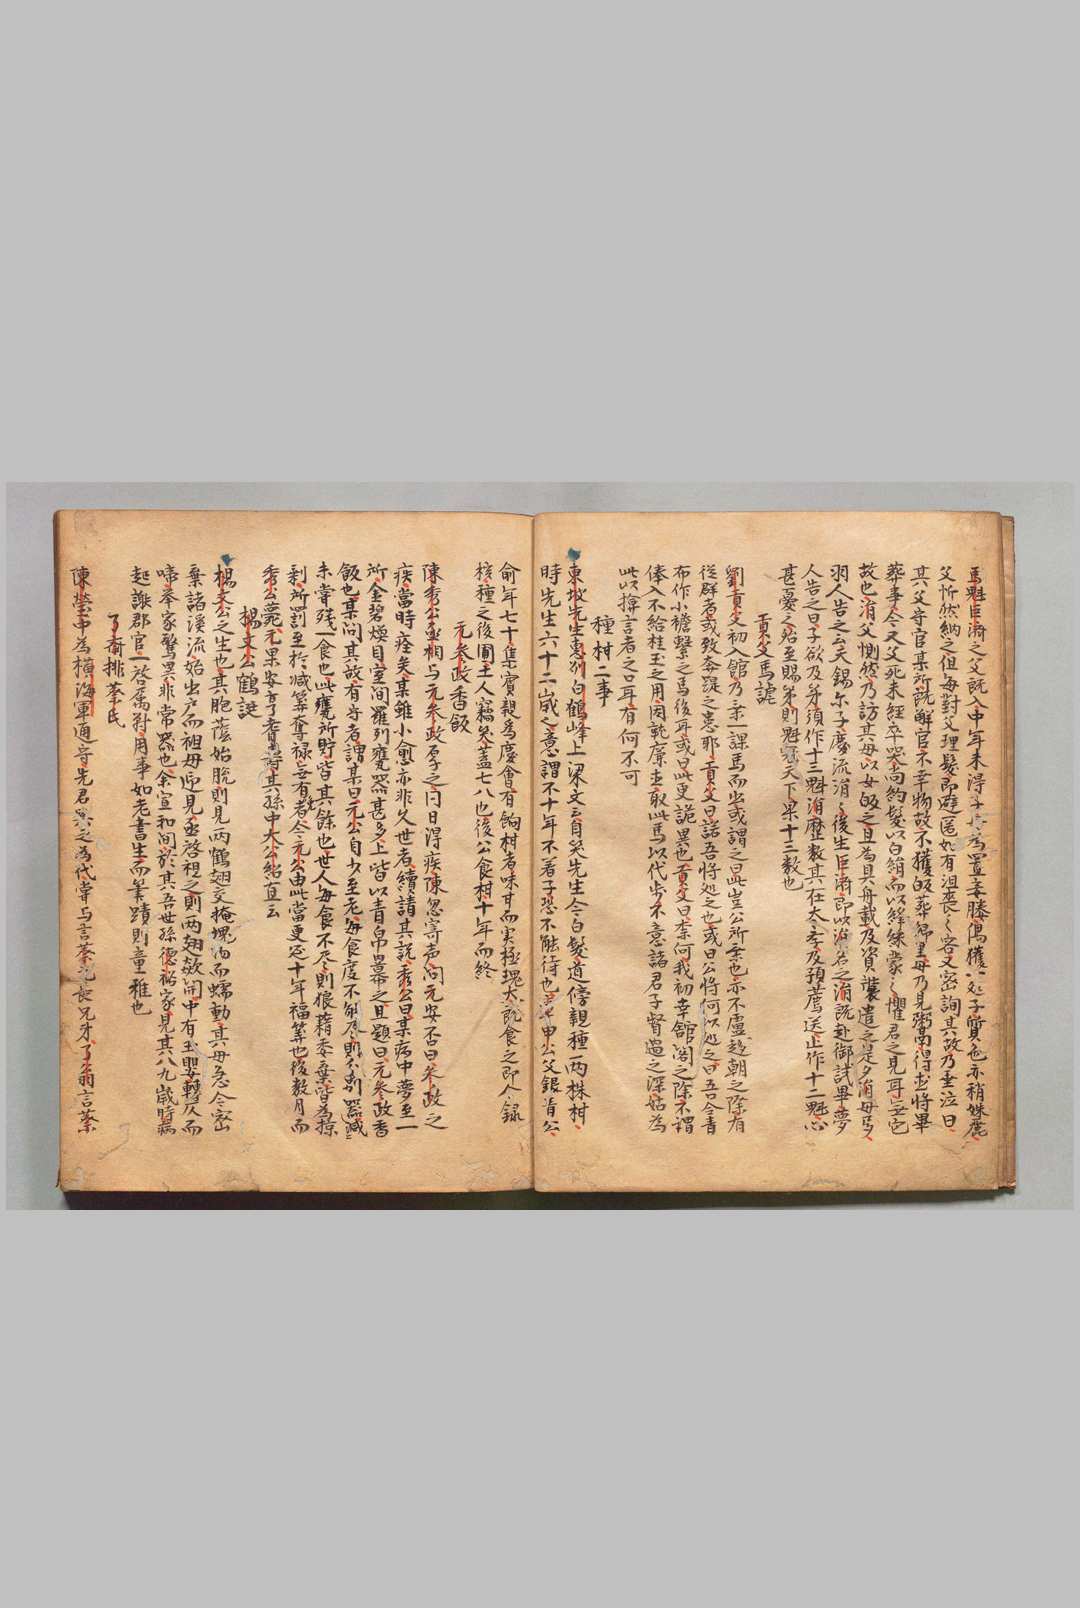 馬魁巨濟之父既入中年未得子母為置妾媵偶獲一處子質色亦稍姝麗
父忻然納之但每對父理髮即避匿如有沮喪之容父密詢其故乃垂泣曰
其父守官某所既解官不幸物故不獲歸葬鄉里母乃見鬻得直將畢
葬事今父死未經卒哭尚約髮以白絹而以絳綵蒙之懼君之見耳無它
故也涓父惻然乃訪其母以女歸之且為具舟載及資裝遣之是夕涓母夢
羽人告之云天錫尔子慶流涓涓後生巨濟即以涓名之涓既赴御試畢夢
人告之曰子欲及第須作十三魁涓歷數其在太學及預薦送止作十二魁心
甚憂之殆至賜第則魁冠天下果十三數也
貢父馬謔
劉貢父初入館乃乘一騍馬而出或謂之曰此豈公所乘也亦不慮趍朝之際有
從群者或致奔踶之患耶貢父曰諾吾將處之也或曰公將何以處之曰吾令青
布作小襜繫之馬後耳或曰此更詭異也貢父曰柰何我初幸舘閣之除不謂
俸入不給桂玉之用因就廉直取此馬以代步不意諸君子督過之深姑為
此以揜言者之口耳有何不可
種柑二事
東坡先生惠州白鶴峰上梁文云自笑先生今白髮道傍親種兩株柑
時先生六十二歲也意謂不十年不著子恐不能待也章申公父銀青公
俞年七十集賓親為慶會有餉柑者味甘而实極瑰大既食之即令錄
核種之後圃土人竊笑蓋七八也後公食柑十年而終
元參政香飯
陳秀公丞相与元參政厚子之問日得疾陳忽寄声問元安否曰參政之
疾當時痊矣某雖小愈亦非久世者續請其說秀公曰某病中夢至一
所金碧煥目室間羅列甕器甚多上皆以青帛冪之且題曰元參政香
飯也某問其故有守者謂某曰元公自少至老每食度不能尽則分別器減
未嘗殘一食也此甕所貯皆其餘也世人每食不尽則狼藉委棄皆為掠
剩所罰至於减筭奪禄無有者今元公由此當更延十年福筭也後數月而
秀公薨元果安享耆壽其孫中大公紹直云
楊文公鶴誕
楊文公之生也其胞蔭始脫則見兩鶴翅交掩塊物而蠕動其母急令密
棄諸溪流始出户而祖母迎見亟啓視之則兩翅欻開中有玉嬰轉仄而
啼舉家驚異非常器也余宣和間於其五世孫德裕家見其八九歲時病
起謝郡官一啓属對用事如老書生而筆蹟則童稚也
了齋排蔡氏
陳瑩中為橫海軍通守先君與之為代嘗与言蔡元長兄弟了翁言蔡